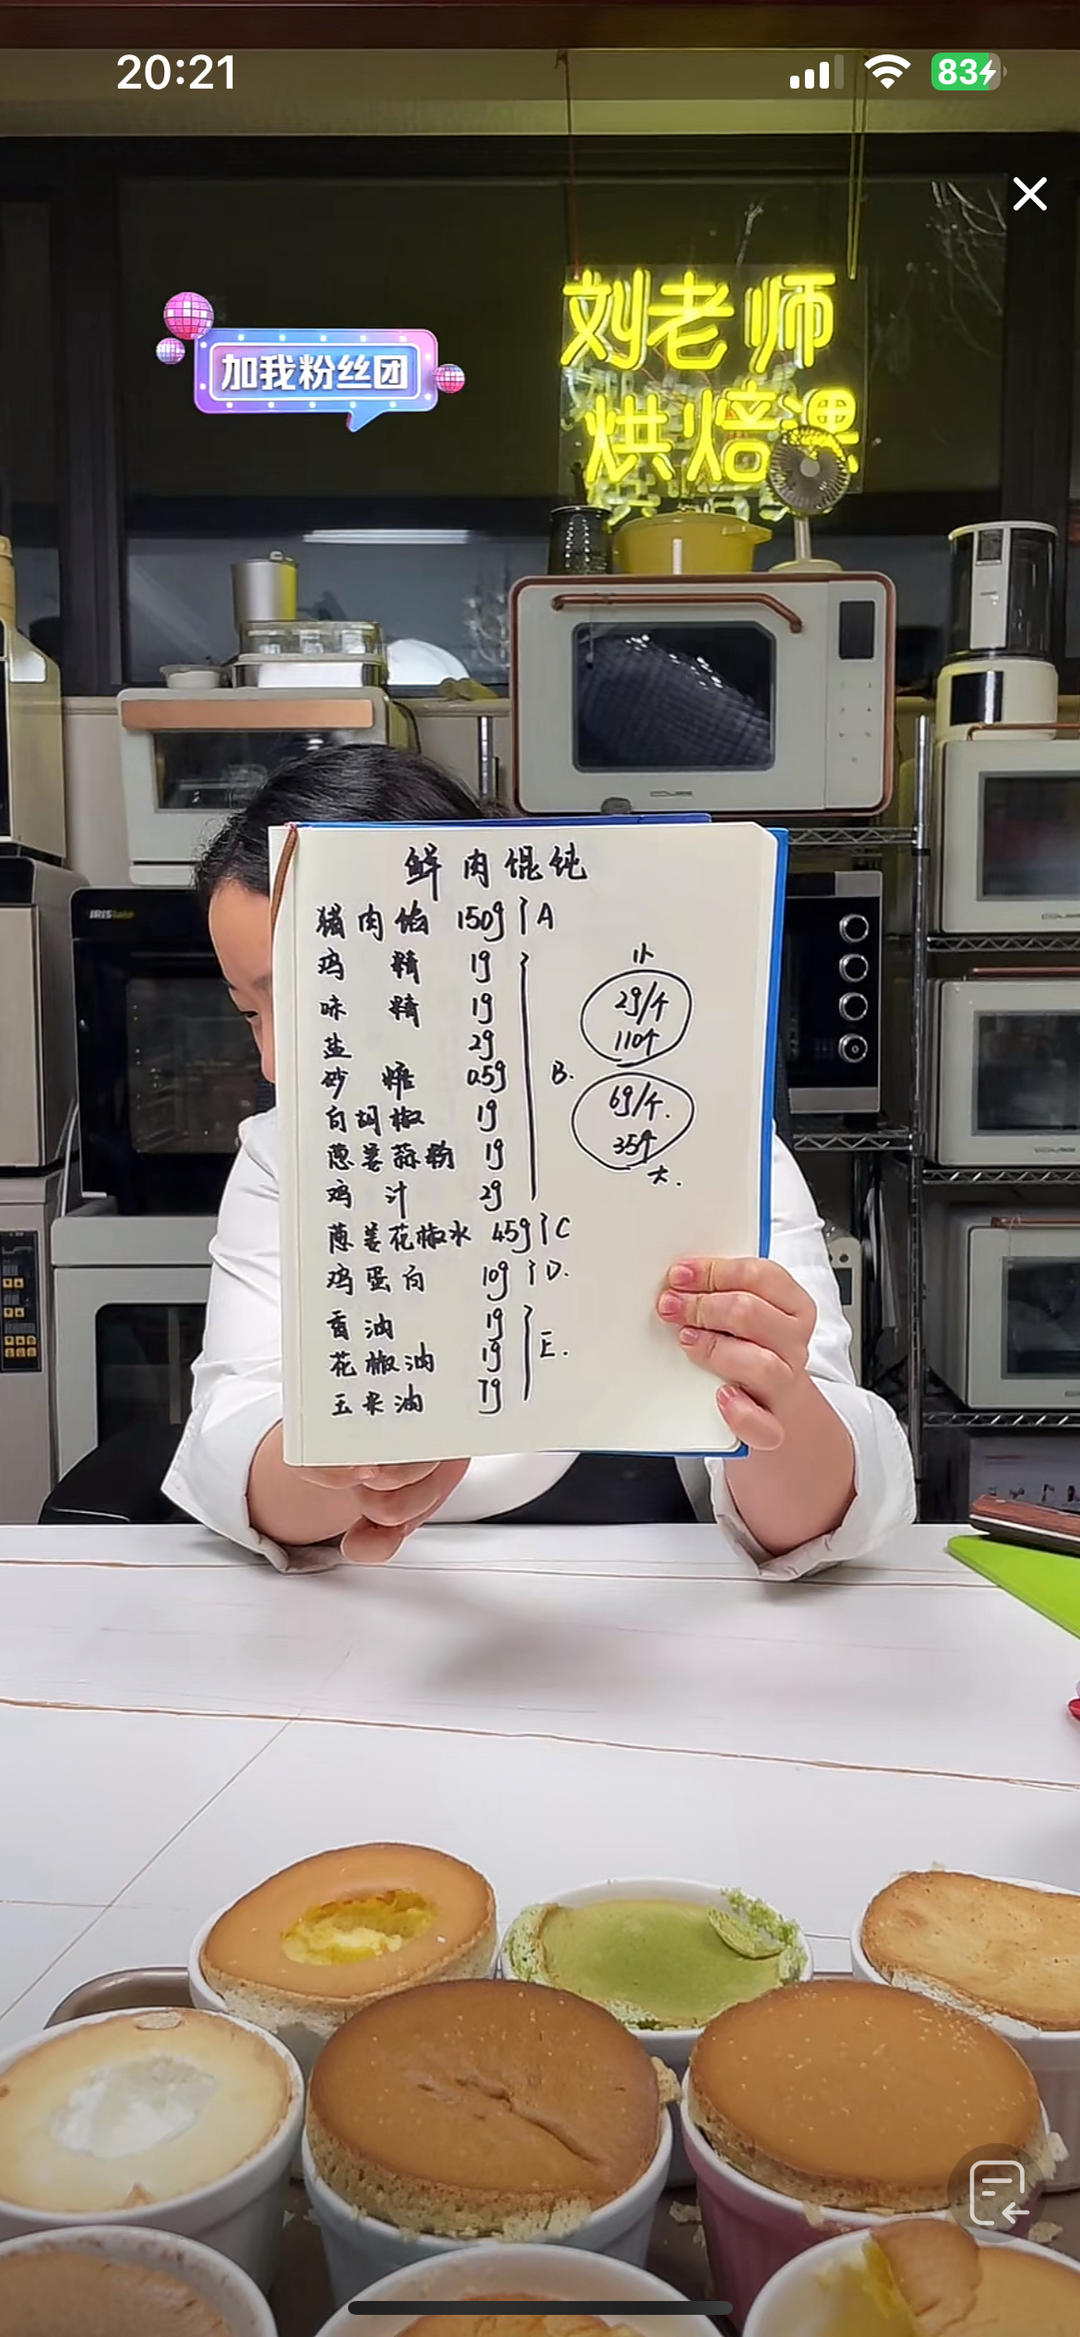 20:21
83
刘老师
加我粉丝团
烘焙课
鲜肉馄饨
猪肉馅 150g } A
鸡精 1g
味精 1g
盐 2g
砂糖 0.5g
白胡椒 1g
葱姜蒜粉 1g
鸡汁 2g
B.
小
2g/个
110个
6g/个.
35个
大.
葱姜花椒水 45g } C
鸡蛋白 10g } D.
香油 1g
花椒油 1g
玉米油 7g
E.